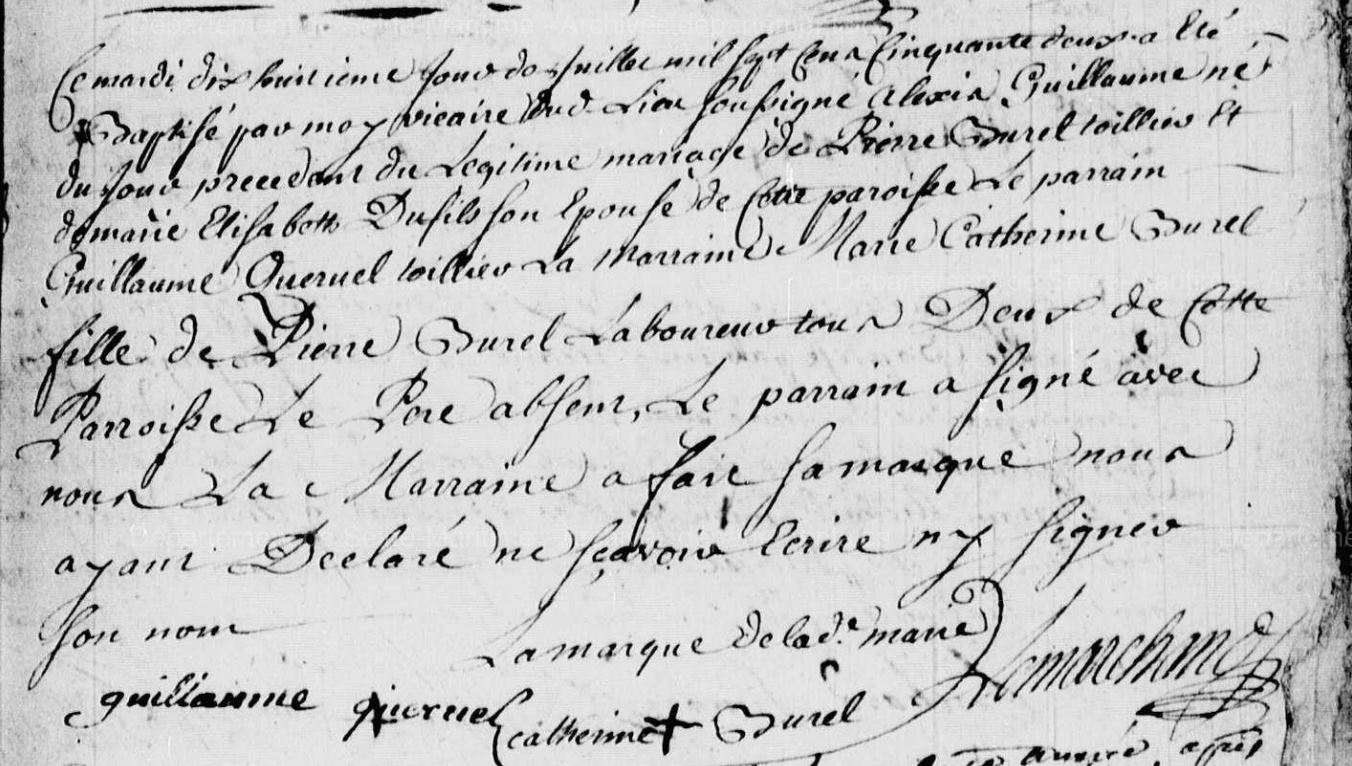 Ce mardi dix huitieme Jour de Juillet mil sept Cens Cinquante deux a Eté
Baptisé par moy vicaire dud. Lieu soussigné Alexis Guillaume né
du Jour precedent du Legitime mariage de Pierre Burel toillier Et
de marie Elisabeth Dufils son Epouse de Cette paroisse Le parrain
Guillaume Queruel toillier La Marraine Marie Catherine Burel
fille de Pierre Burel Laboureur tous Deux de Cette
Parroisse Le Pere absent, Le parrain a signé avec
nous La Marraine a fait sa marque nous
ayant Declaré ne sçavoir Ecrire ny signer
son nom
La marque de lad.e marie
Lemarchand
guillaume queruel
Catherine + Burel
année, apris